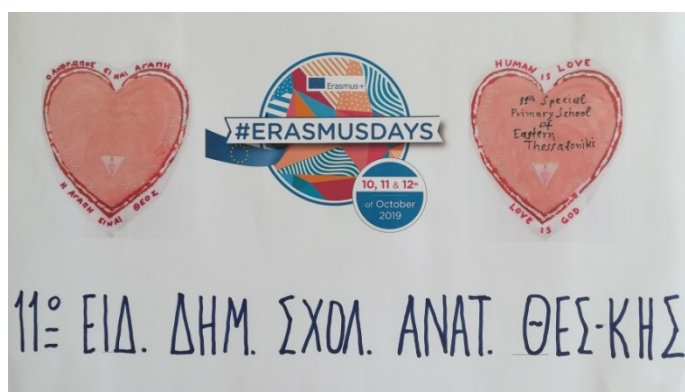 Ο ΑΝΘΡΩΠΟΣ ΕΙΝΑΙ ΑΓΑΠΗ
Η ΑΓΑΠΗ ΕΙΝΑΙ ΘΕΟΣ
Erasmus+
#ERASMUSDAYS
10, 11 & 12th
of October
2019
HUMAN IS LOVE
11th Special
Primary School
of
Eastern
Thessaloniki
LOVE IS GOD
11º ΕΙΔ. ΔΗΜ. ΣΧΟΛ. ΑΝΑΤ. ΘΕΣ-ΚΗΣ